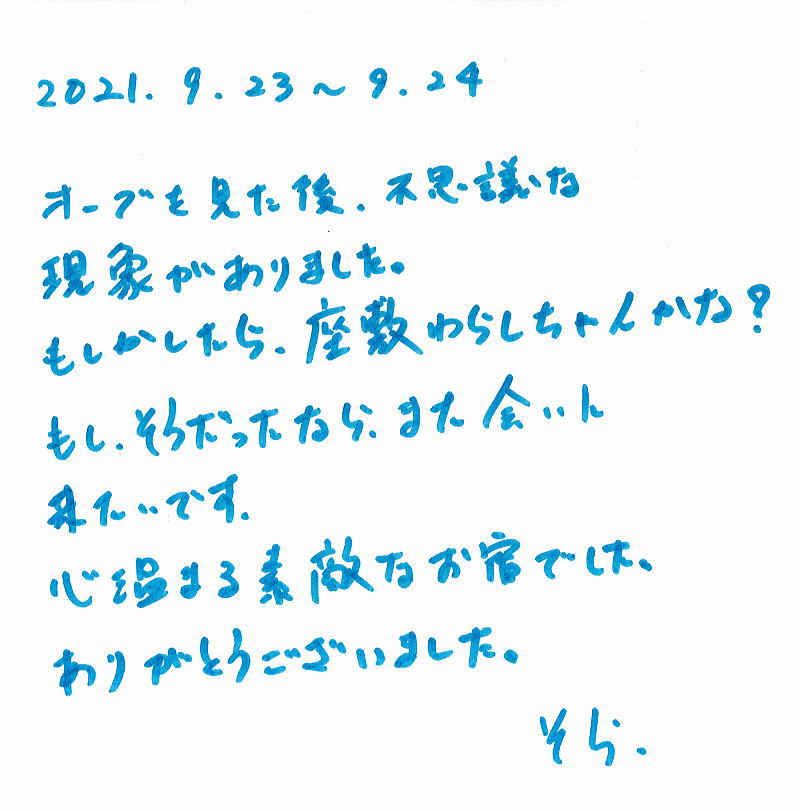 2021. 9. 23 〜 9. 24
オーブを見た後、不思議な
現象がありました。
もしかしたら、座敷わらしちゃんかな?
もし、そうだったなら、また会いに
来たいです。
心温まる素敵なお宿でした。
ありがとうございました。
そら.